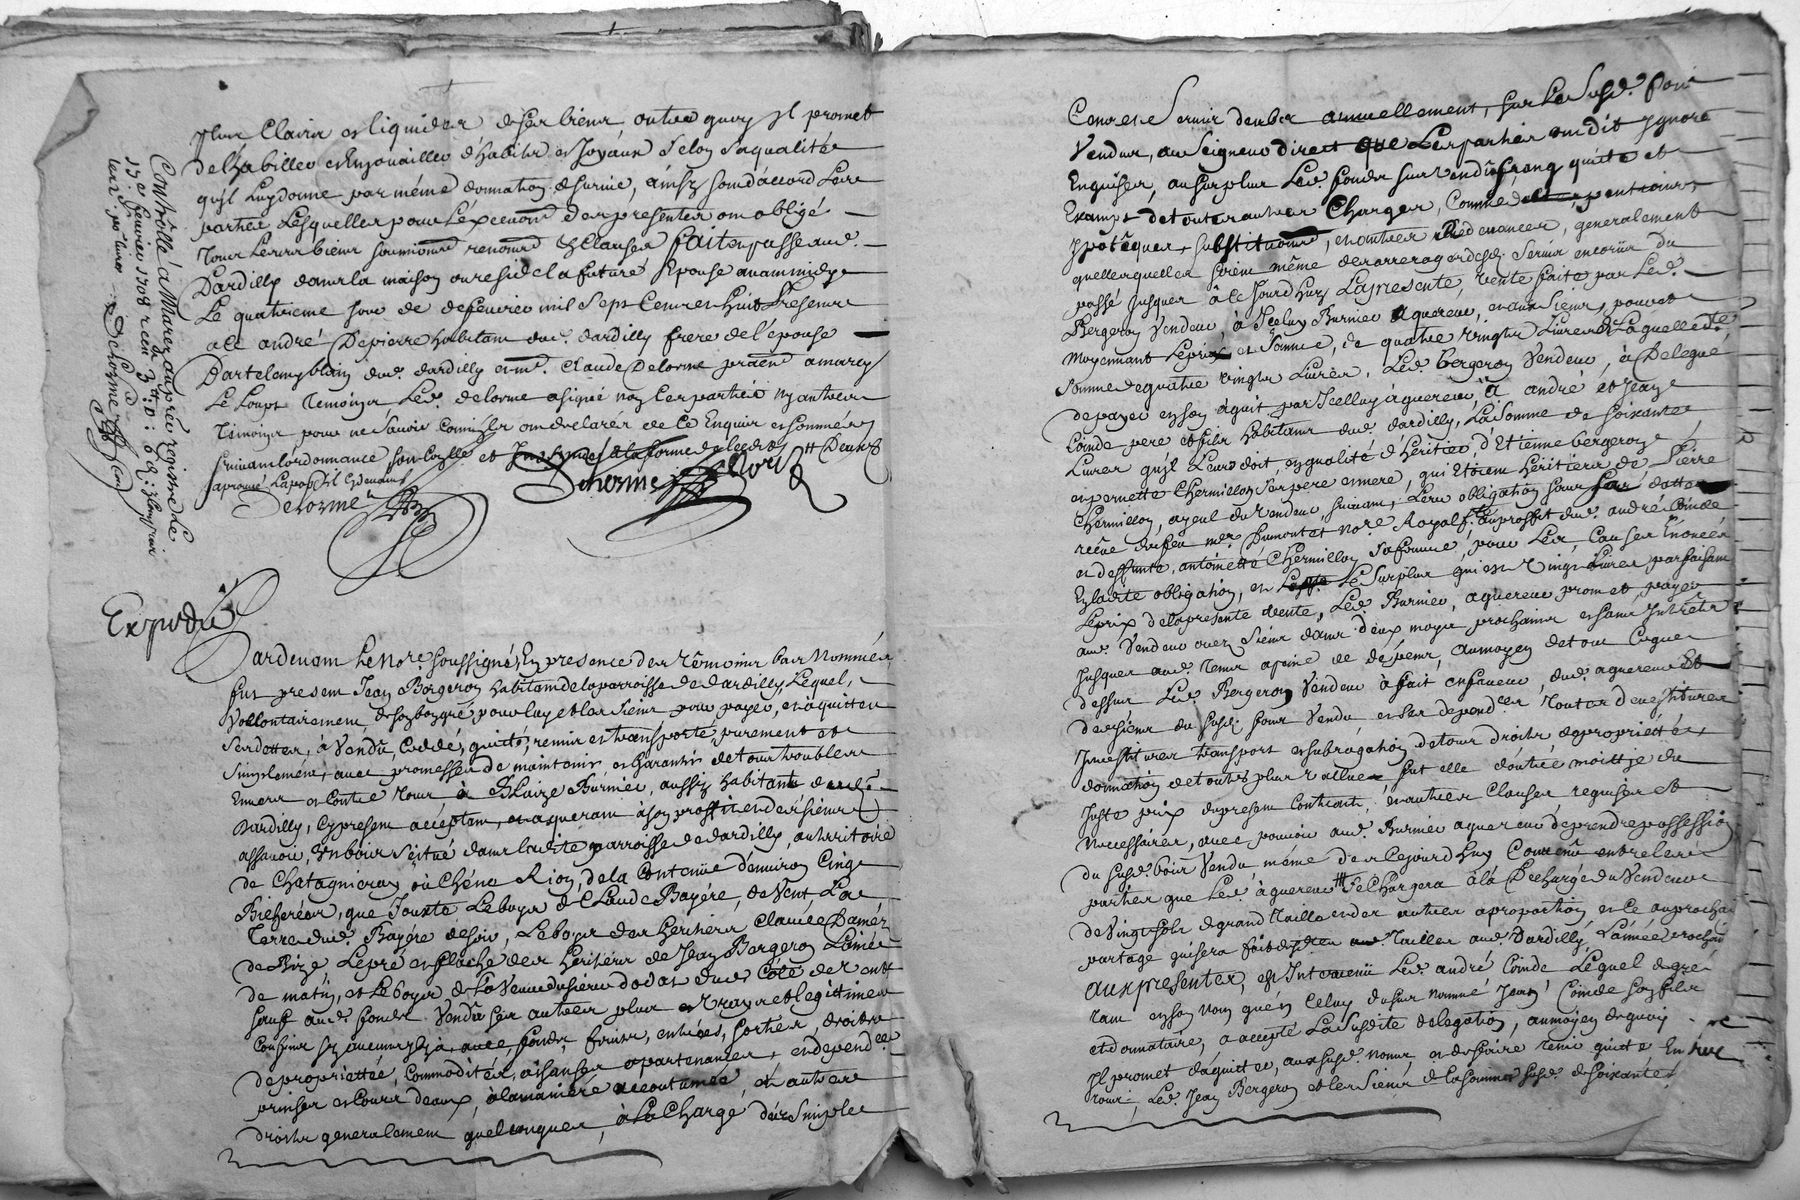 plus Clairs et liquides de ses biens outre quoy Il promet
de habiller et Enjouailler d'habits et Joyaux Selon Sa qualité
qu'il Luy donne par même donnation de survie, ainsy sont d'accord Les
parties Lesquelles pour L'execution des presentes ont obligé
Tous Leurs biens soumissions renons & Clauses fait et passé aud.
Dardilly dans la maison ou reside la future Epouse avant midy
Le quatrieme jour de de feuvrier mil Sept Cent et huit Presents
a Ce andré Depierre habitant dud. dardilly frere de l'épouse
dud. dardilly et mr. Claude Delorme praen a marcy
Le Loup Temoings Led. delorme a signé non Les parties ny autres
Témoings pour ne Sçavoir Comils ont declarés de Ce Enquis et sommés
suivant Lordonnance
Delorme
Controllé a Marcy au pred registre Le
feuvrier 1708
Expedié
Pardevant Le Nore. soussigné, En presence des Témoins bas Nommés
fut present Jean Bergeron habitant de la parroisse de dardilly, Lequel,
Vollontairement de son bon gré pour luy et les Siens pour payer, et aquitter
Ses dettes, à Vendû, Ceddé, quitté, remis et transporté, purement et
Simplement, avec promesses de maintenir et garantir de tous troubles
Envers et Contre Tous à Blaize Burnier, aussy habitant dud.
Dardilly, Cy present acceptant, et aquerant à son proffit et des siens
assavoir, Un bois Scitué dans ladite parroisse de dardilly, au territoire
de Chatagnieray où Chéne Rion, de la Contenüe denviron Cinq
Bicherées, que Jouxte Le boys de Claude Bayére, de Vent, La
Terre dud. Bayére de soir, Le boys des heritiers Claude Daméz
de Bize, Le pré et flache des heritiers de Jean Bergeron L'ainé
de matin, et Le boys de La Veuve du sieur dodat dud. Côté de Vent
sauf aud. fonds Vendû ses autres plus Vrays et legittimes
Confins sy aucuns y a, avec, fonds, fruits, entrées, sorties, droits
de propriettés, Commodités, aisances apartenances, et depend.ces
prinses et Cours deaux, à la maniere accoutumée et autres
droits generalement quelconques, à La Charge des Simples
Cens et Servis deubs annuellement, sur Le Susd. bois
Vendus, au Seigneur direct que Les parties ont dit Ignoré
Enquises, au surplus Led. fonds sus Vendu franq quitte et
Exempt de toutes autres Charges, Comme
ypotéques, substitutions, et autres redevances, generalement
quelles quelles soient même des arrerages desd. Servis encorüs du
passé Jusques à Ce Jourdhuy La presente, Vente faite par Led.
Bergeron Vendeur, à Iceluy Burnier aquereur, et aux Siens, pour et
Moyennant Le prix et Somme, de quatre Vingts Livres Laquelle
Somme de quatre Vingts Livres, Led. bergeron Vendeur, à Delegué
de payer en son aquit par Icelluy aquereur, à andré et Jean
Coinde pere et fils habitants dud. dardilly, La Somme de soixante
Livres qu'il Leurs doit, en qualité d'héritier, d'Etienne bergeron
et pernette Chermillon ses pere et mere, qui Etoient héritiers de Pierre
Chermillon, ayeul du Vendeur suivant, Leur obligation
reçûe du feu mr. Dumont et nore. Royal, au proffit dud. andré Coinde
et deffunte, antoinette Chermillon Sa femme, pour Les Causes Enoncées
En ladite obligation, et Le Surplus qui est Vingt Livres parfaisant
Le prix de la presente Vente, Led. Burnier, aquereur promet, payer
aud. Vendeur ou es Siens dans deux moys prochains et sans Interets
Jusques aud. Tems a peine de dépens, au moyen de tout Ce que
dessus Led. Bergeron Vendeur à fait en faveur, dud. aquereur Et
des siens du susd. fonds Vendu et ses depend.ces Toutes devestitures
Investitures transport et subrogation de tous droits de proprietté,
donnation de toutes plus Vallues fut elle doutre moittje du
Juste prix du present Contract et autres Clauses requises et
Necessaires, avec pouvoir aud. Burnier aquereur de prendre possession
du susd. bois Vendu, même des Cejourdhuy Convenû entre les
parties que Led. aquereur Se Chargera à la Decharge du Vendeur
de Vingt sols de grand Taille et des autres a proportion, et Ce au prochain
partage qui sera fait des Tailles aud. Dardilly, L'année prochaine
aux presentes, est Intervenü Led. andré Coinde Lequel de gré
Tant en son Nom quen Celuy dusus nommé Jean Coinde son fils
et donnataire, a accepté La Susdite delegation, au moyen de quoy
Il promet d'aquitter, aux susd. noms et de faire Tenir quitte Envers
Tous, Led. Jean Bergeron et les Siens de La somme susd. de soixante